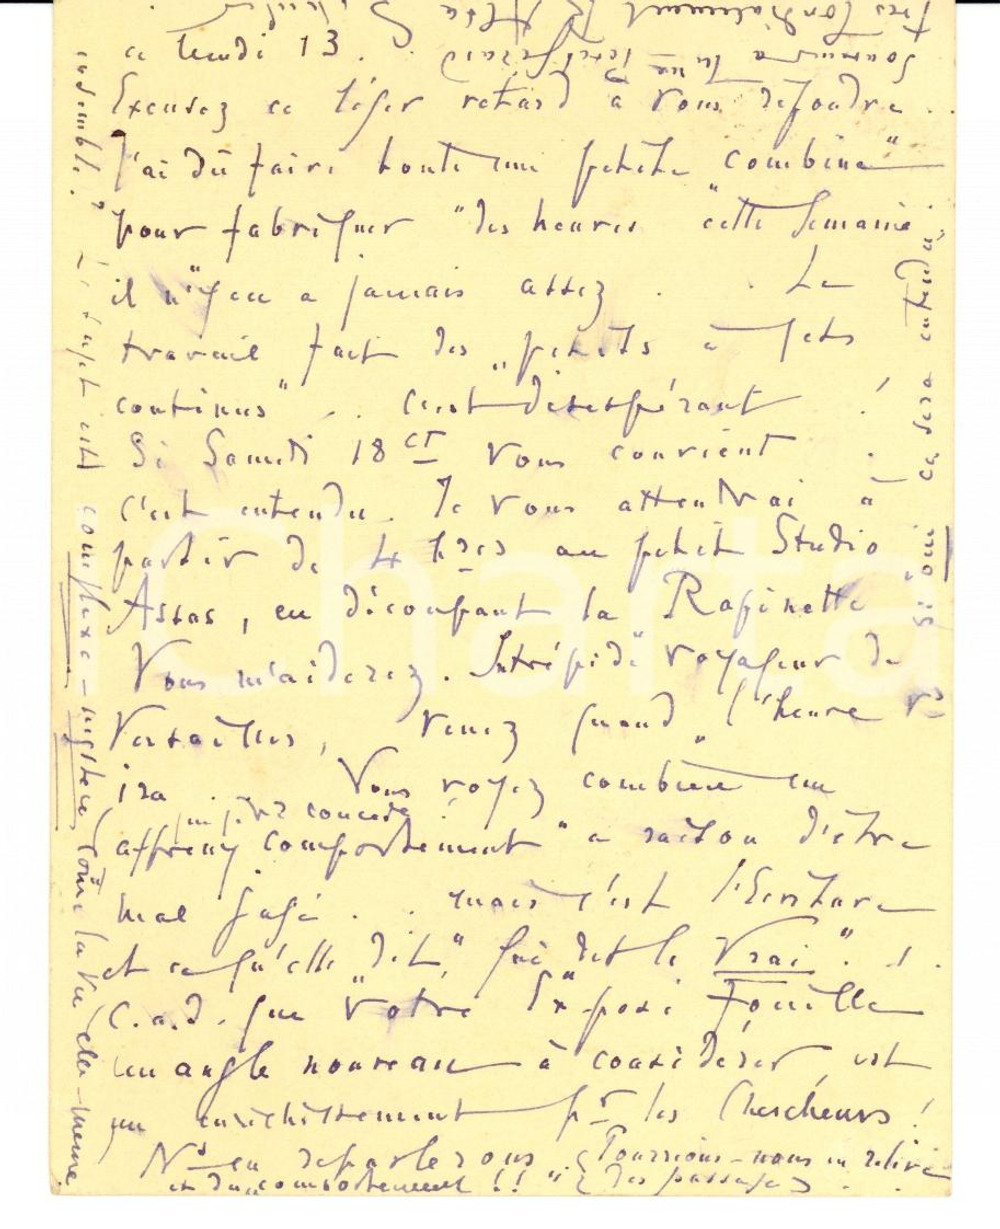 ce lundi 13.
Excusez ce léger retard à vous répondre.
J'ai dû faire toute une petite "combine"
pour fabriquer "des heures" cette semaine,
il n'y en a jamais assez . . Le
travail fait des "petits à jets
continus" . . c'est désespérant !
Si Samedi 18 ct vous convient
c'est entendu. Je vous attendrai à
partir de 4 hres au petit Studio
Assas, en découpant la
Vous m'aiderez. Intrépide voyageur de
Versailles, venez quand "l'heure vs
ira. Vous voyez combien un
affreux comportement" a raison d'être
mal jugé . . mais c'est l'Ecriture
et ce qu'elle "dit", qui dit le Vrai" . .
C.a.d. que "votre Exposé" Fouille
un angle nouveau à considérer, est
un enrichissement pr les Chercheurs !
Ns en reparlerons. Pourrions-nous en relire
et du "comportement !! " des passages
ensemble ? Le sujet est complexe - mystère comme la vie elle-même
Si oui ce sera entendu
Très cordialement
Charta